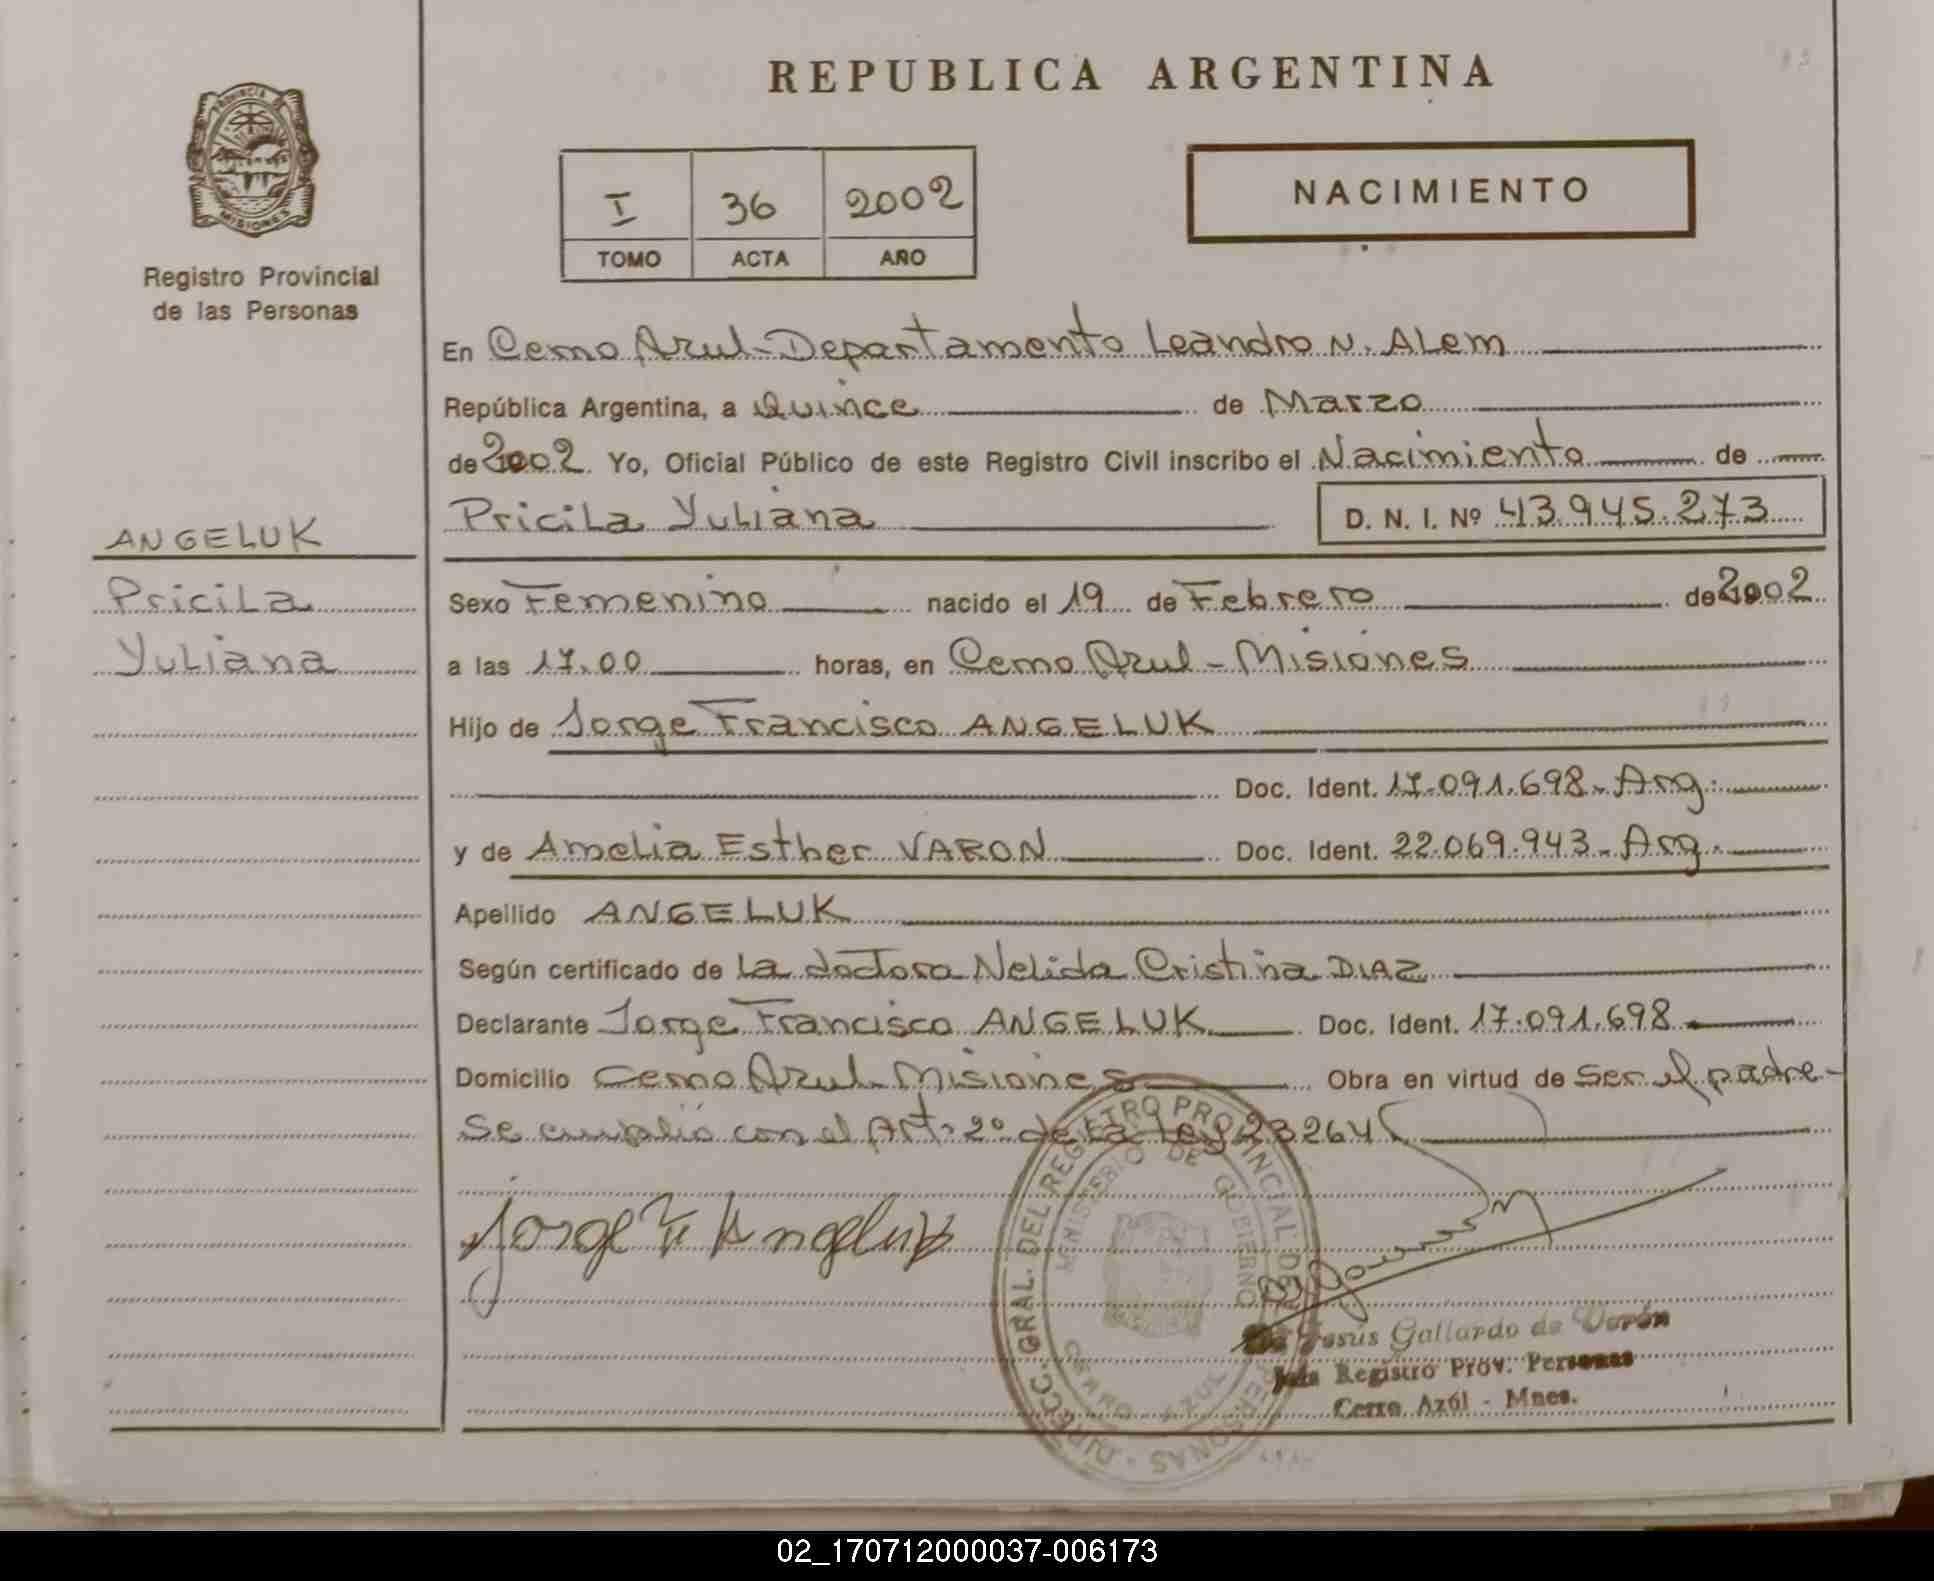 REPUBLICA ARGENTINA
PROVINCIA DE
MISIONES
Registro Provincial
de las Personas
I 36 2002
TOMO ACTA AÑO
NACIMIENTO
En Cerro Azul-Departamento Leandro N. ALem
República Argentina, a Quince de Marzo
de 2002. Yo, Oficial Público de este Registro Civil inscribo el Nacimiento de
Pricila Yuliana D. N. I. Nº 43.945.273
ANGELUK
Pricila
Yuliana
Sexo Femenino nacido el 19 de Febrero de 2002
a las 17.00 horas, en Cerro Azul - Misiones
Hijo de Jorge Francisco ANGELUK
Doc. Ident. 17.091.698- Arg.
y de Amelia Esther VARON Doc. Ident. 22.069.943- Arg.
Apellido ANGELUK
Según certificado de la doctora Nelida Cristina DIAZ
Declarante Jorge Francisco ANGELUK Doc. Ident. 17.091.698
Domicilio Cerro Azul-Misiones Obra en virtud de Ser el padre-
Se cumplió con el Art. 2º de la Ley 23264
Jorge F Angeluk
DIRECC. GRAL. DEL REGISTRO PROVINCIAL DE LAS PERSONAS
MINISTERIO DE GOBIERNO
CERRO AZUL
Jesús Gallardo de Verón
Jefa Registro Prov. Personas
Cerro Azúl - Mnes.
02_170712000037-006173